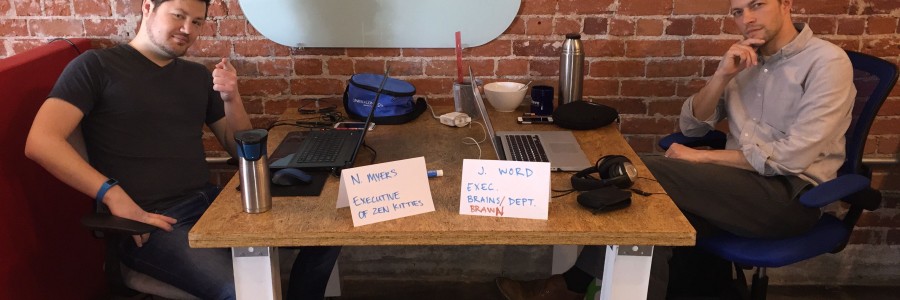 N. MYERS
EXECUTIVE
OF ZEN KITTIES
J. WORD
EXEC.
BRAINS/DEPT.
BRAWN